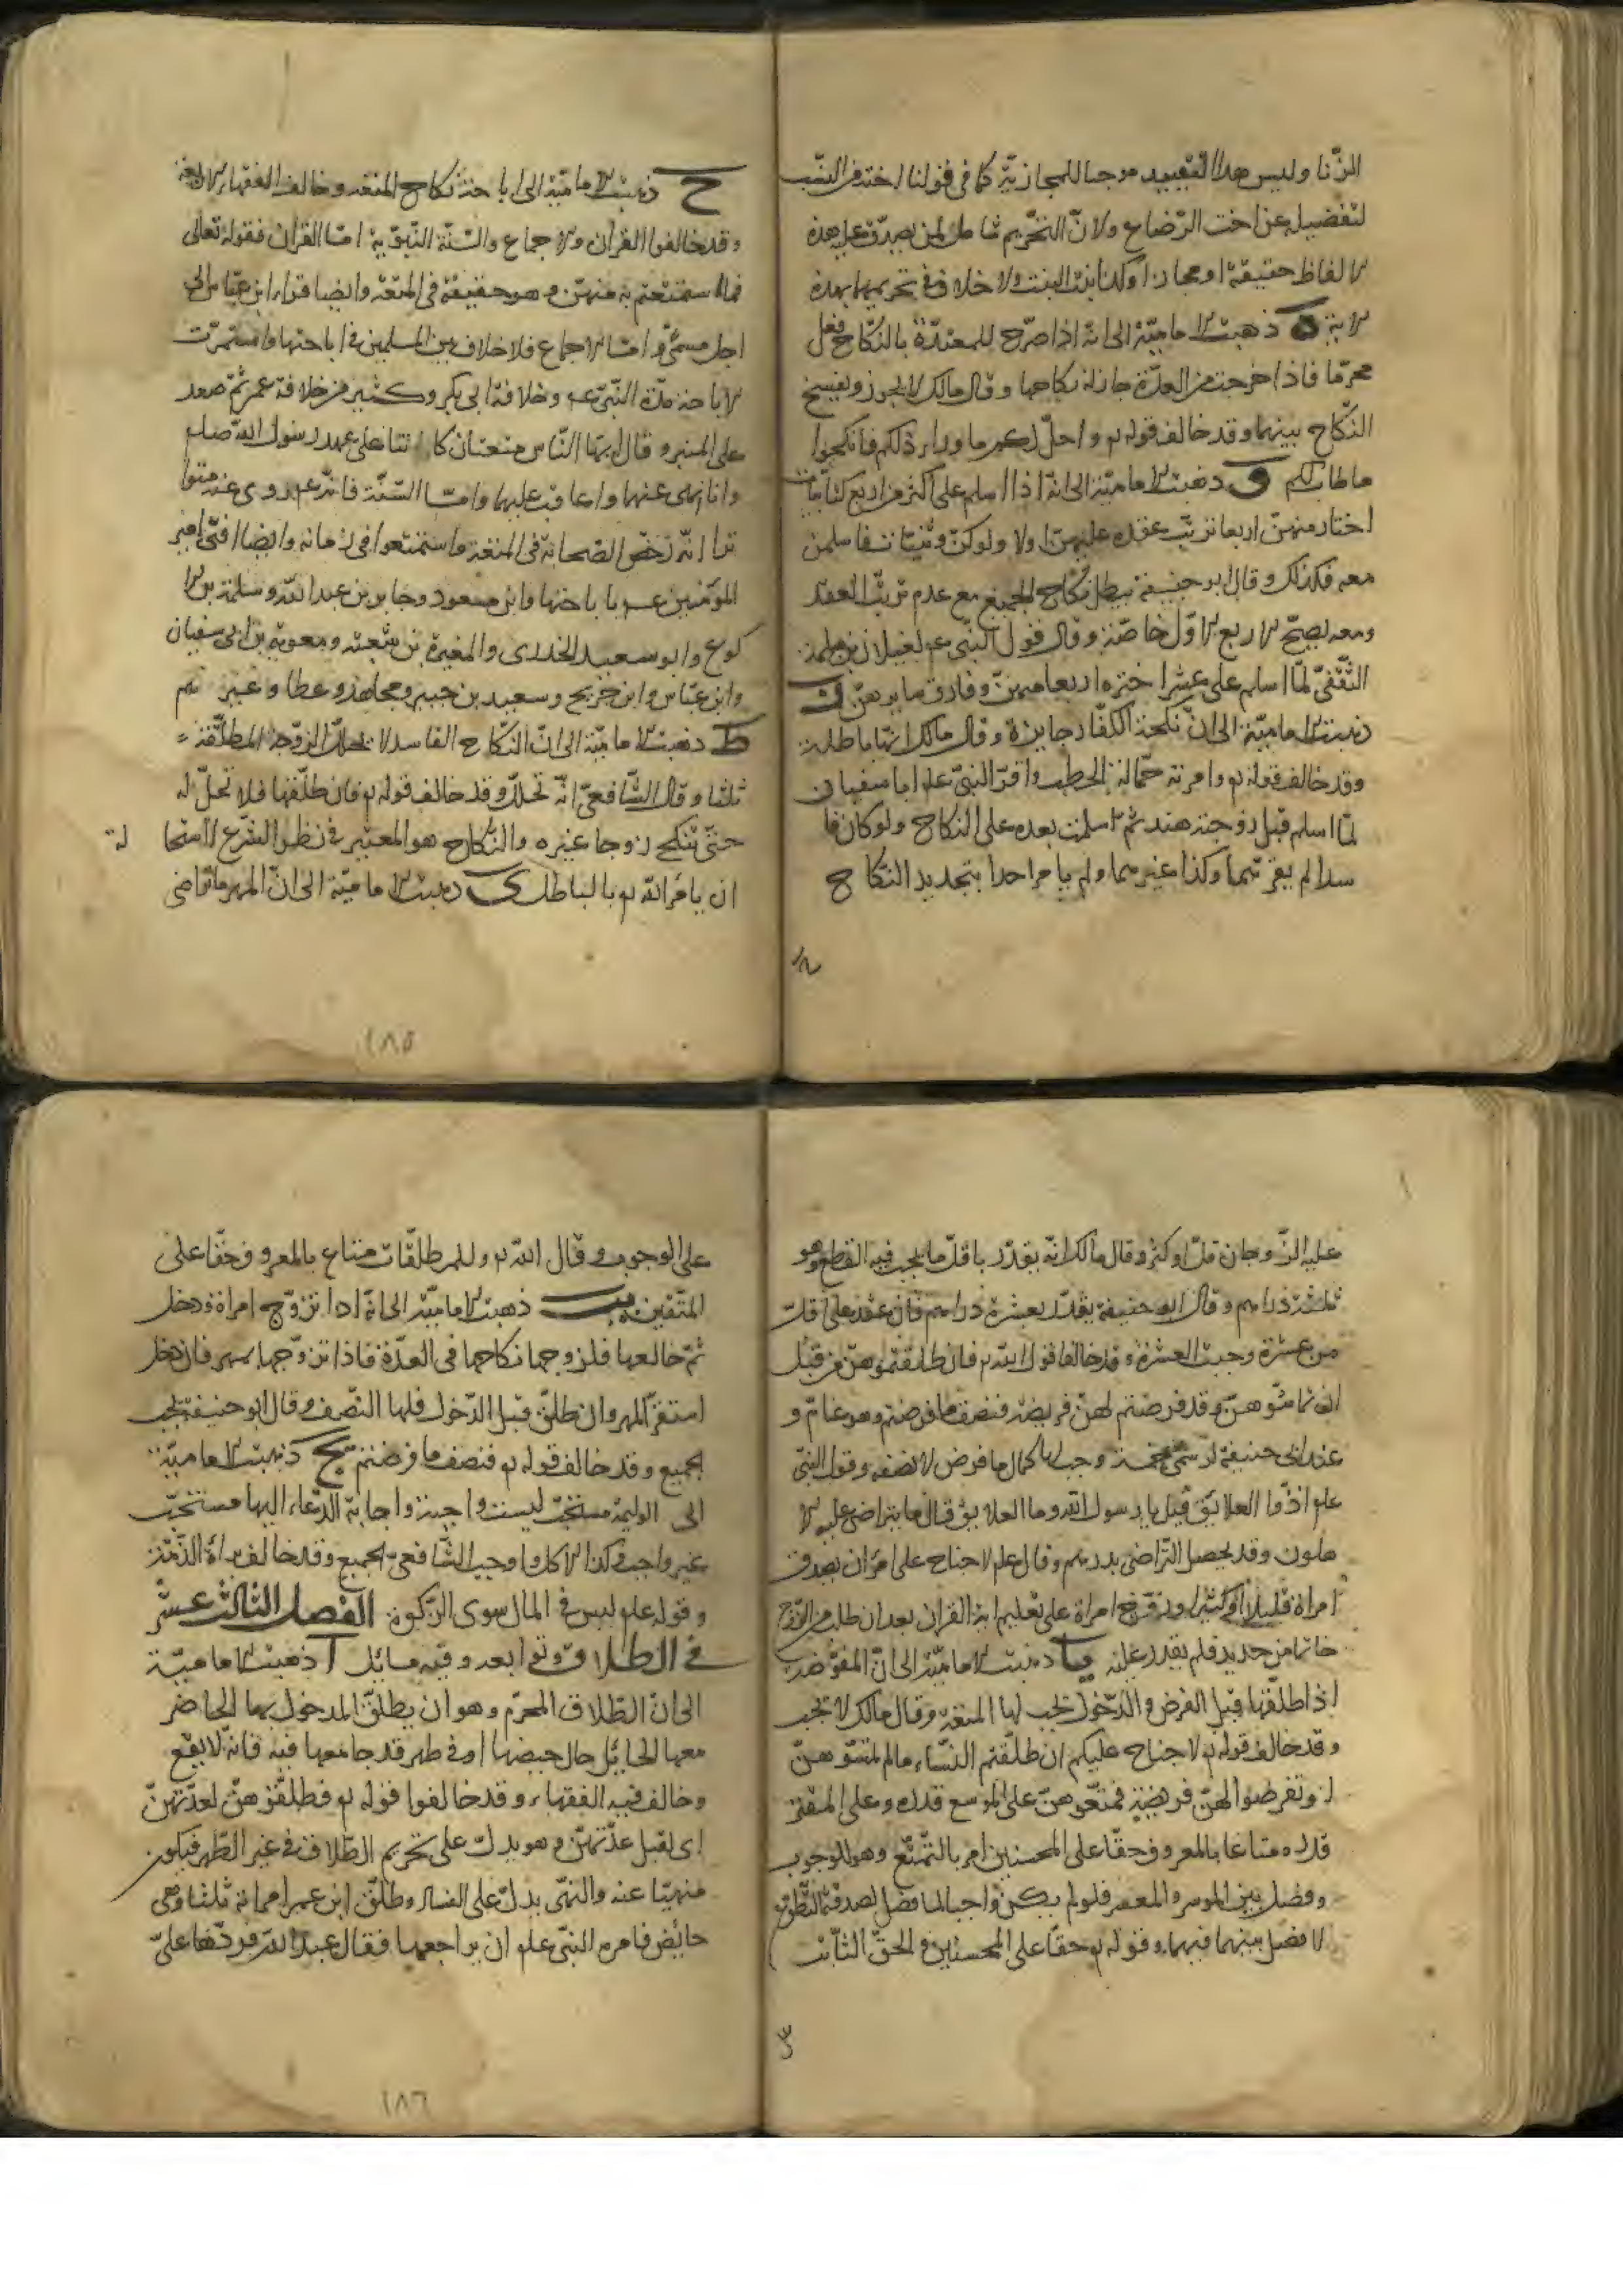 الزنا وليس هذا التقييد موجبا للمجازيّة كما في قولنا اخته من النسب
لتفضيله عن اخت الرّضاع ولانّ التحريم شامل لمن يصدق عليه هذه
الالفاظ حقيقة او مجازا وكذا بنت البنت ولا خلاف في تحريمها بهذه
الاية ه ذهبت الاماميّة الى انه اذا صرّح للمعتدّة بالنّكاح فعل
محرّما فاذا خرجت من العدّة جاز له نكاحها وقال مالك لا يجوز ويفسخ
النكاح بينهما وقد خالف قوله تع واحلّ لكم ما وراء ذلكم فانكحوا
ما طاب لكم و ذهبت الاماميّة الى انه اذا اسلم على اكثر من اربع كتابيات
اختار منهنّ اربعا ترتّب عقده عليهنّ اولا ولو كنّ وثنيّات فاسلمن
معه فكذلك وقال ابو حنيفة يبطل نكاح الجميع مع عدم ترتّب العقد
ومعه يصحّ الاربع الاوّل خاصّة وقال قول النبي عم لغيلان بن
الثّقفيّ لمّا اسلم على عشر اختر اربعا منهنّ وفارق سايرهنّ ز
ذهبت الاماميّة الى انّ نكحة الكفّار جايزة وقال مالك انّها باطلة
وقد خالف قوله تع وامرته حمّالة الحطب واقرّ النبيّ عم ابا سفيان
لمّا اسلم قبل زوجته هند ثم اسلمت بعده على النكاح ولو كان فا
سدا لم يقرّهما وكذا غيرهما ولم يامر احدا بتجديد النكاح
ح ذهبت الاماميّة الى اباحة نكاح المتعة وخالف الفقهاء الاربعة
وقد خالفوا القران والاجماع والسّنّة النّبويّة امّا القران فقوله تعالى
فما استمتعتم به منهنّ وهو حقيقة في المتعة وايضا قراء ابن عبّاس الى
اجل مسمّى وامّا الاجماع فلا خلاف بين المسلمين في اباحتها واستمرّت
الاباحة مدّة النّبيّ عم وخلافة ابي بكر وكثير من خلافة عمر ثمّ صعد
على المنبر وقال ايها النّاس متعتان كانتا على عهد رسول الله صلعم
وانا انهى عنهما واعاقب عليهما وامّا السّنّة فانّه روى عنه متوا
ترا انّه رخّص الصّحابة في المتعة واستمتعوا في زمانه وايضا افتى امير
المؤمنين عم باباحتها وابن مسعود وجابر بن عبد الله وسلمة بن الا
كوع وابو سعيد الخدرى والمغيرة بن شعبة ومعوية بن ابي سفيان
وابن عبّاس وابن جريح وسعيد بن جبير ومجاهد وعطا وغيرهم
ط ذهبت الاماميّة الى انّ النكاح الفاسد لا يحلّل الزوجة المطلّقة
ثلثا وقال الشّافعيّ انّه تحلّل وقد خالف قوله تع فان طلّقها فلا تحلّ له
حتّى تنكح زوجا غيره والنّكاح هو المعتبر في نظر الشرع لاستحا لة
ان يامر الله تع بالباطل ى ذهبت الاماميّة الى انّ المهر ما تراضى
١٨٥
عليه الزّوجان قلّ او كثر وقال مالك انّه يقدّر باقلّ ما يجب فيه القطع وهو
ثلثة دراهم وقال ابو حنيفة يقدّر بعشرة دراهم فان عقد على اقلّ
من عشرة وجبت العشرة وقد خالفا قول الله تع فان طلّقتموهنّ من قبل
ان تماسّوهنّ وقد فرضتم لهنّ فريضة فنصف ما فرضتم وهو عامّ و
عند ابي حنيفة لو سمّى خمسة وجب لها كمال ما فرض لا نصفه وقول النبيّ
عم ادّوا العلائق قيل يا رسول الله وما العلايق قال ما يتراضى عليه الا
هلون وقد يحصل التّراضى بدرهم وقال عم لا جناح على امرئ ان يصدق
امراة قليلا او كثيرا وزوّج امراة على تعليم اية القران بعد ان طلب من الزّوج
خاتما من حديد فلم يقدر عليه يا ذهبت الاماميّة الى انّ المفوّضة
اذا طلّقها قبل الفرض والدّخول تجب لها المتعة وقال مالك لا تجب
وقد خالف قوله تع لا جناح عليكم ان طلّقتم النّساء ما لم تمسّوهنّ
او تفرضوا لهنّ فريضة فمتّعوهنّ على الموسع قدره وعلى المقتر
قدره متاعا بالمعروف حقّا على المحسنين امر بالتّمتّع وهو للوجوب
وفصل بين الموسر والمعسر فلو لم يكن واجبا لما فصل لصدقة التّطوّع
لا فصل بينهما فيهما وقوله تع حقّا على المحسنين والحقّ الثّابت
على الوجوب وقال الله تع وللمطلّقات متاع بالمعروف حقّا على
المتّقين يب ذهبت الاماميّة الى انّه اذا تزوّج امراة ودخل
ثمّ خالعها فلزوجها نكاحها في العدّة فاذا تزوّجها بمهر فان دخل
استقرّ المهر وان طلّق قبل الدّخول فلها النّصف وقال ابو حنيفة يجب
الجميع وقد خالف قوله تع فنصف ما فرضتم يج ذهبت الاماميّة
الى الوليمة مستحبّة ليست واجبة واجابة الدّعاء اليها مستحبّ
غير واجب وكذا الاكل واوجب الشّافعيّ الجميع وقد خالف براءة الذّمّة
وقوله عم ليس في المال سوى الزّكوة الفصل الثالث عشر
في الطلاق وتوابعه وفيه مسائل ا ذهبت الاماميّة
الى انّ الطّلاق المحرّم وهو ان يطلّق المدخول بها الحاضر
معها الحايل حال حيضها او في طهر قد جامعها فيه فانّه لا يقع
وخالف فيه الفقهاء وقد خالفوا قوله تع فطلّقوهنّ لعدّتهنّ
اى لقبل عدّتهنّ وهو يدلّ على تحريم الطّلاق في غير الطّهر فيكون
منهيّا عنه والنّهى يدلّ على الفساد وطلّق ابن عمر امراته ثلثا وهى
حائض فامره النّبيّ عم ان يراجعها فقال عبد الله فردّها علىّ
١٨٦